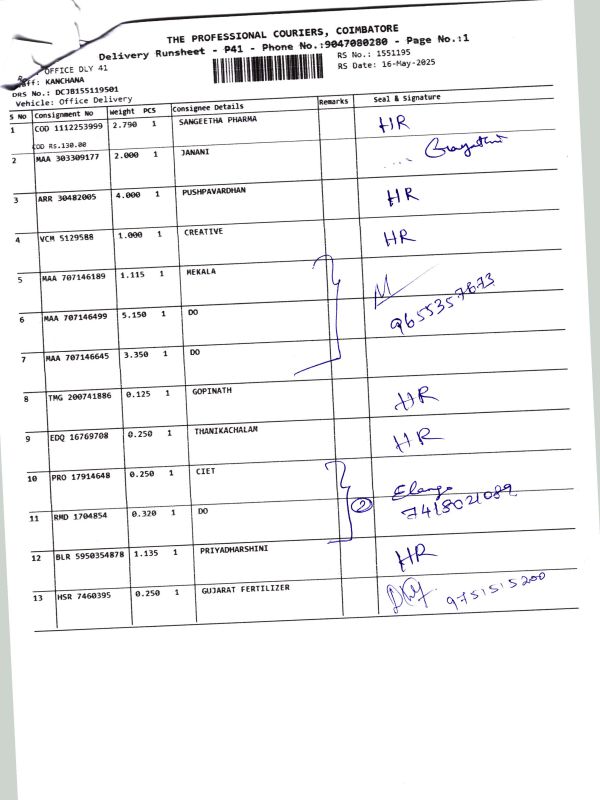 THE PROFESSIONAL COURIERS, COIMBATORE
Delivery Runsheet - P41 - Phone No.:9047080280 - Page No.:1
OFFICE DLY 41
RS No.: 1551195
KANCHANA
RS Date: 16-May-2025
DRS No.: DCJB155119501
Vehicle: Office Delivery
S No Consignment No Weight PCS Consignee Details Remarks Seal & Signature
1 COD 1112253999 2.790 1 SANGEETHA PHARMA HR
COD Rs.130.00
2 MAA 303309177 2.000 1 JANANI
3 ARR 30482005 4.000 1 PUSHPAVARDHAN HR
4 VCM 5129588 1.000 1 CREATIVE HR
5 MAA 707146189 1.115 1 MEKALA M
9655357673
6 MAA 707146499 5.150 1 DO
7 MAA 707146645 3.350 1 DO
8 TMG 200741886 0.125 1 GOPINATH HR
9 EDQ 16769708 0.250 1 THANIKACHALAM HR
10 PRO 17914648 0.250 1 CIET Elango
11 RMD 1704854 0.320 1 DO 2 7418021089
12 BLR 5950354878 1.135 1 PRIYADHARSHINI HR
13 HSR 7460395 0.250 1 GUJARAT FERTILIZER 9751515200